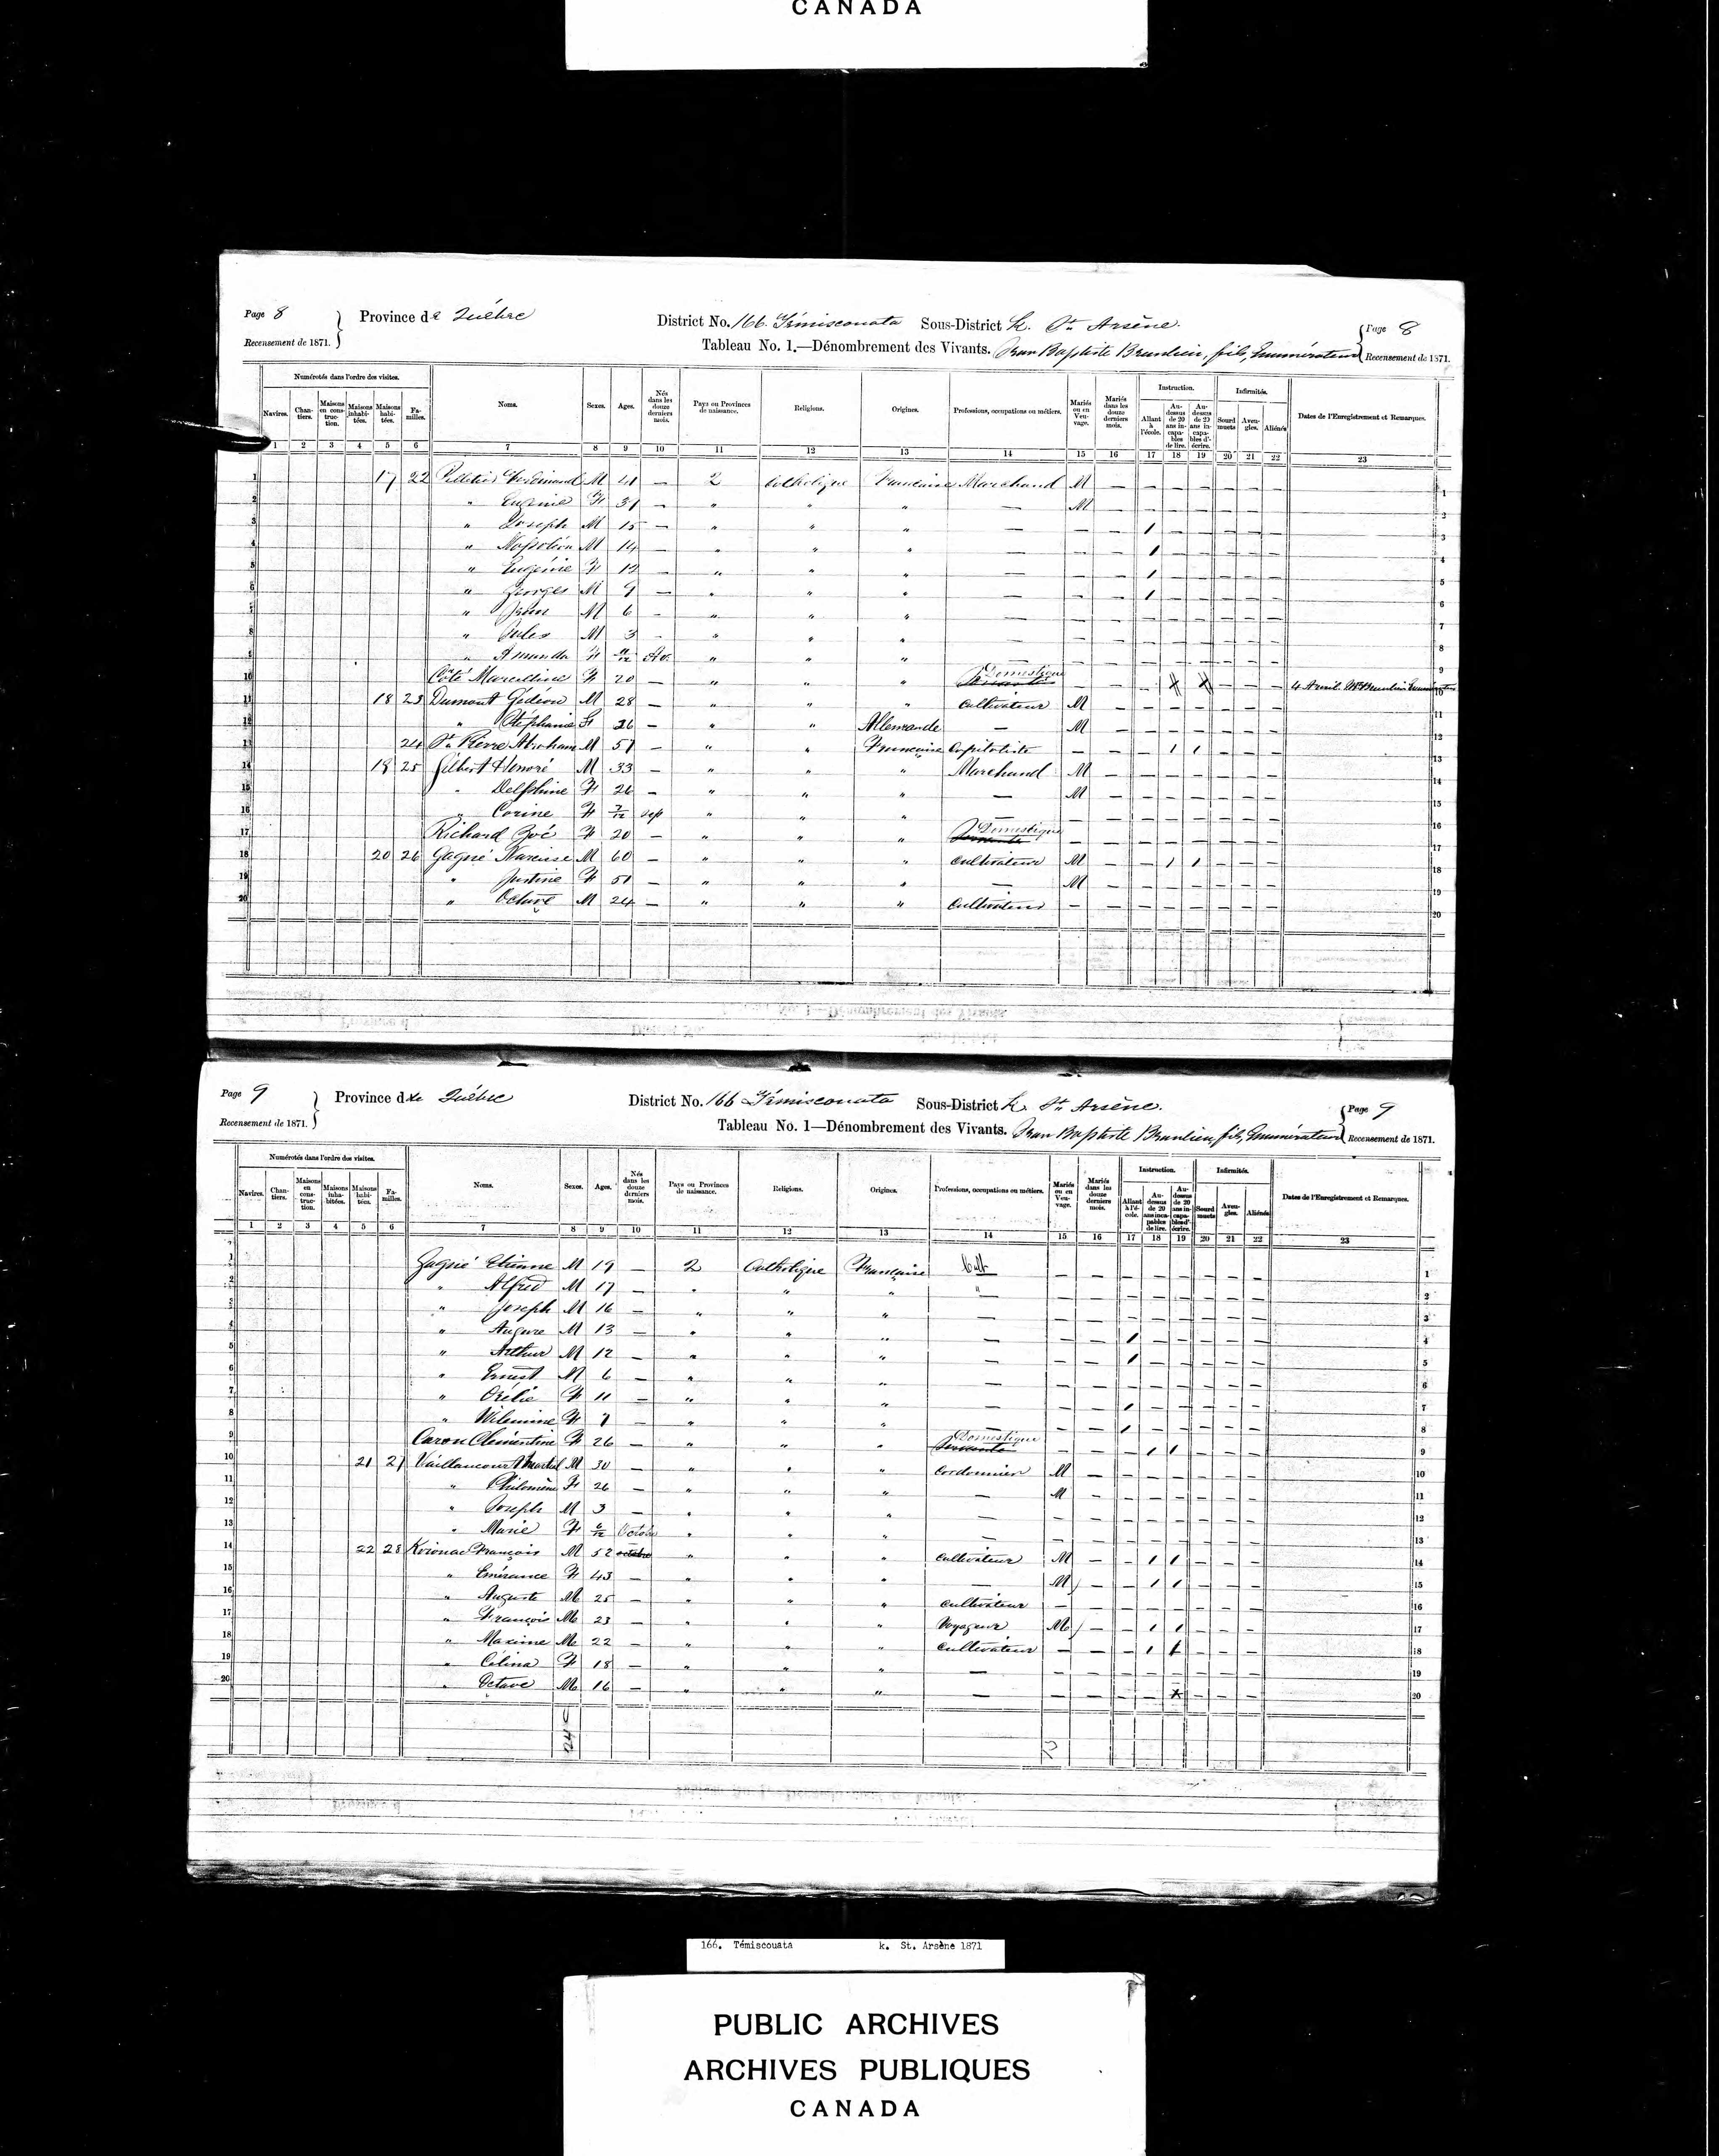 CANADA
Page 8 Province de Québec District No. 166. Témisconata Sous-District k. St. Arsène. Page 8
Recensement de 1871. Tableau No. 1.—Dénombrement des Vivants. Jean Baptiste Beaulieu, fils, Enumérateur Recensement de 1871.
Numérotés dans l'ordre des visites. Instruction. Infirmités.
Navires. Chantiers. Maisons en construction. Maisons inhabitées. Maisons habitées. Familles. Noms. Sexes. Ages. Nés dans les douze derniers mois. Pays ou Provinces de naissance. Religions. Origines. Professions, occupations ou métiers. Mariés ou en Veuvage. Mariés dans les douze derniers mois. Allant à l'école. Au-dessus de 20 ans incapables de lire. Au-dessus de 20 ans incapables d'écrire. Sourd muets Aveugles. Aliénés Dates de l'Enregistrement et Remarques.
1 2 3 4 5 6 7 8 9 10 11 12 13 14 15 16 17 18 19 20 21 22 23
1 17 22 Pelletier Ferdinand M 41 — 2 Catholique Francaise Marchand M — — — — — — — 1
2 " Eugénie F 31 — " " " — M — — — — — — — 2
3 " Joseph M 15 — " " " — — — 1 — — — — — 3
4 " Napoléon M 14 — " " " — — — 1 — — — — — 4
5 " Eugénie F 12 — " " " — — — 1 — — — — — 5
6 " Georges M 9 — " " " — — — 1 — — — — — 6
7 " M 6 — " " " — — — — — — — — — 7
8 " Jules M 3 — " " " — — — — — — — — — 8
9 " Amanda F 11/12 " " " — — — — — — — — — 9
10 Côté Marcelline F 20 — " " " Domestique Servante — — — X X — — — 4 Avril. 10
11 18 23 Dumont Gédéon M 28 — " " " Cultivateur M — — — — — — — 11
12 " Stéphanie F 26 — " " Allemande — M — — — — — — — 12
13 24 St. Pierre Abraham M 57 — " " Francaise Capitaliste — — — 1 1 — — — 13
14 19 25 Gilbert Honoré M 33 — " " " Marchand M — — — — — — — 14
15 " Delphine F 26 — " " " — M — — — — — — — 15
16 " Corine F 7/12 Sept " " " — — — — — — — — — 16
17 Richard Zoé F 20 — " " " Domestique Servante — — — — — — — — 17
18 20 26 Gagné Narcisse M 60 — " " " Cultivateur M — — 1 1 — — — 18
19 " Justine F 51 — " " " — M — — — — — — — 19
20 " Octave M 24 — " " " Cultivateur — — — — — — — — 20
Page 9 Province de Québec District No. 166 Témisconata Sous-District k. St. Arsène. Page 9
Recensement de 1871. Tableau No. 1—Dénombrement des Vivants. Jean Baptiste Beaulieu, fils, Enumérateur Recensement de 1871.
Numérotés dans l'ordre des visites. Instruction. Infirmités.
Navires. Chantiers. Maisons en construction. Maisons inhabitées. Maisons habitées. Familles. Noms. Sexes. Ages. Nés dans les douze derniers mois. Pays ou Provinces de naissance. Religions. Origines. Professions, occupations ou métiers. Mariés ou en Veuvage. Mariés dans les douze derniers mois. Allant à l'école. Au-dessus de 20 ans incapables de lire. Au-dessus de 20 ans incapables d'écrire. Sourd muets Aveugles. Aliénés Dates de l'Enregistrement et Remarques.
1 2 3 4 5 6 7 8 9 10 11 12 13 14 15 16 17 18 19 20 21 22 23
1 Gagné Etienne M 19 — 2 Catholique Française Cult — — — — — — — — 1
2 " Alfred M 17 — " " " " — — — — — — — — 2
3 " Joseph M 16 — " " " — — — — — — — — — 3
4 " M 13 — " " " — — — 1 — — — — — 4
5 " Arthur M 12 — " " " — — — 1 — — — — — 5
6 " Ernest M 6 — " " " — — — — — — — — — 6
7 " Orélie F 11 — " " " — — — 1 — — — — — 7
8 " Wilemine F 7 — " " " — — — 1 — — — — — 8
9 Caron Clémentine F 26 — " " " Domestique Servante — — — 1 1 — — — 9
10 21 27 Vaillancourt Martial M 30 — " " " Cordonnier M — — — — — — — 10
11 " Philomène F 26 — " " " — M — — — — — — — 11
12 " Joseph M 3 — " " " — — — — — — — — — 12
13 " Marie F 6/12 Octobre " " " — — — — — — — — — 13
14 22 28 François M 52 octobre " " " Cultivateur M — — 1 1 — — — 14
15 " Emérance F 43 — " " " — M — — 1 1 — — — 15
16 " Auguste M 25 — " " " Cultivateur — — — — — — — — 16
17 " François M 23 — " " " Voyageur M — — 1 1 — — — 17
18 " Maxime M 22 — " " " Cultivateur — — — 1 1 — — — 18
19 " Célina F 18 — " " " — — — — — — — — — 19
20 " Octave M 16 — " " " — — — — — X — — — 20
166. Témiscouata k. St. Arsène 1871
PUBLIC ARCHIVES
ARCHIVES PUBLIQUES
CANADA